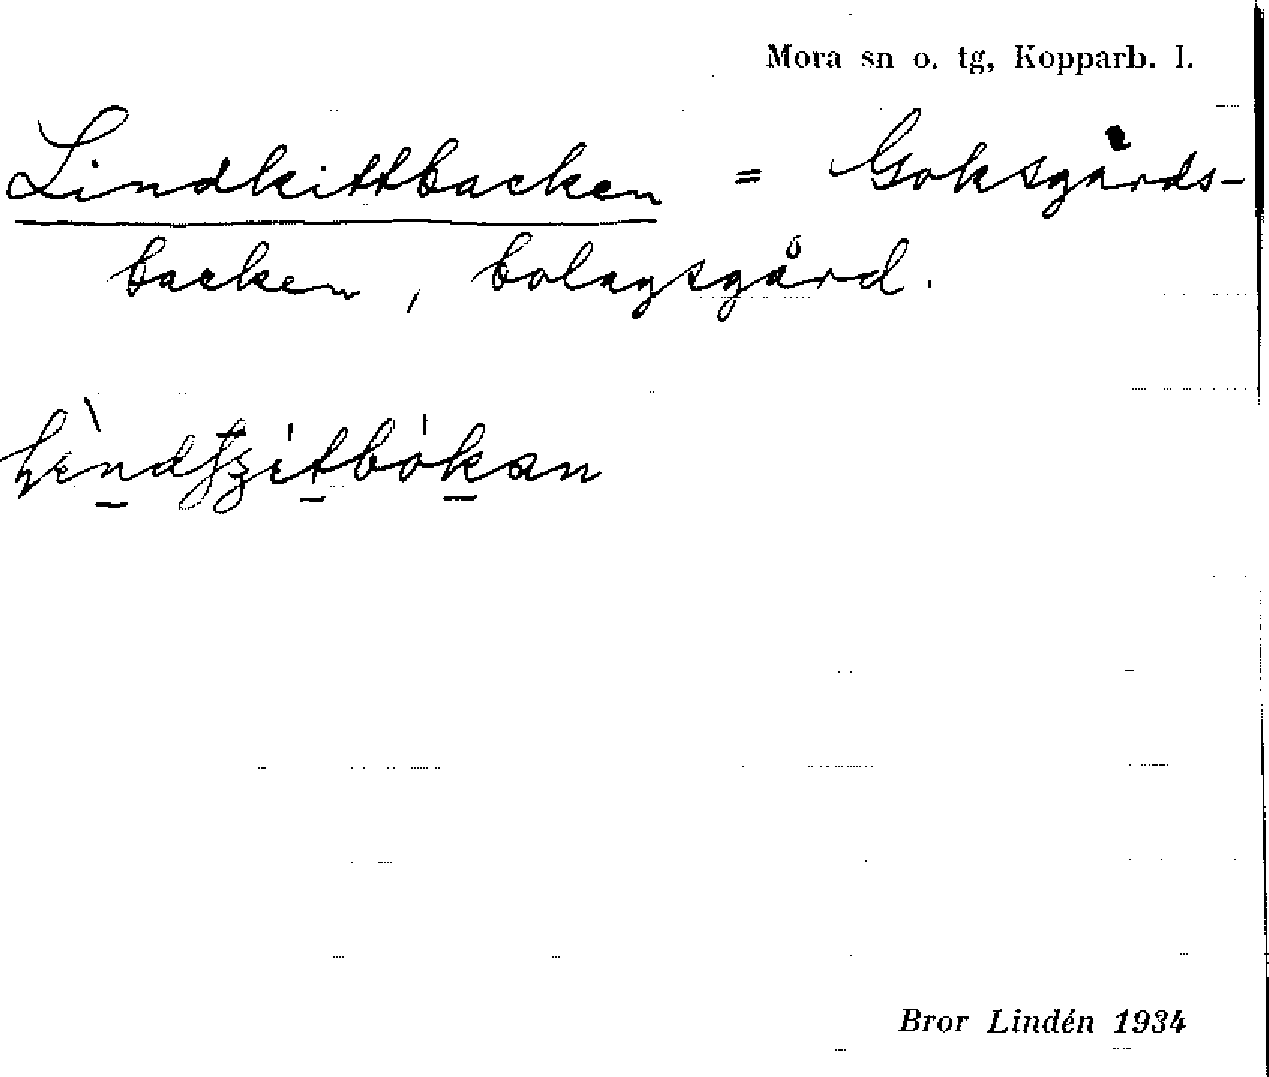 Mora sn o. tg, Kopparb. l.
Lindkittbacken = Goksgårds-
backen, bolagsgård.
Bror Lindén 1934